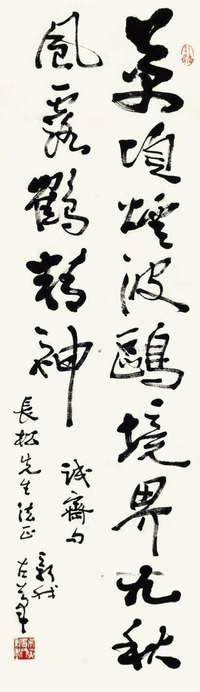 萬頃煙波鷗境界九秋
風露鶴精神
誠齋句
長松先生法正